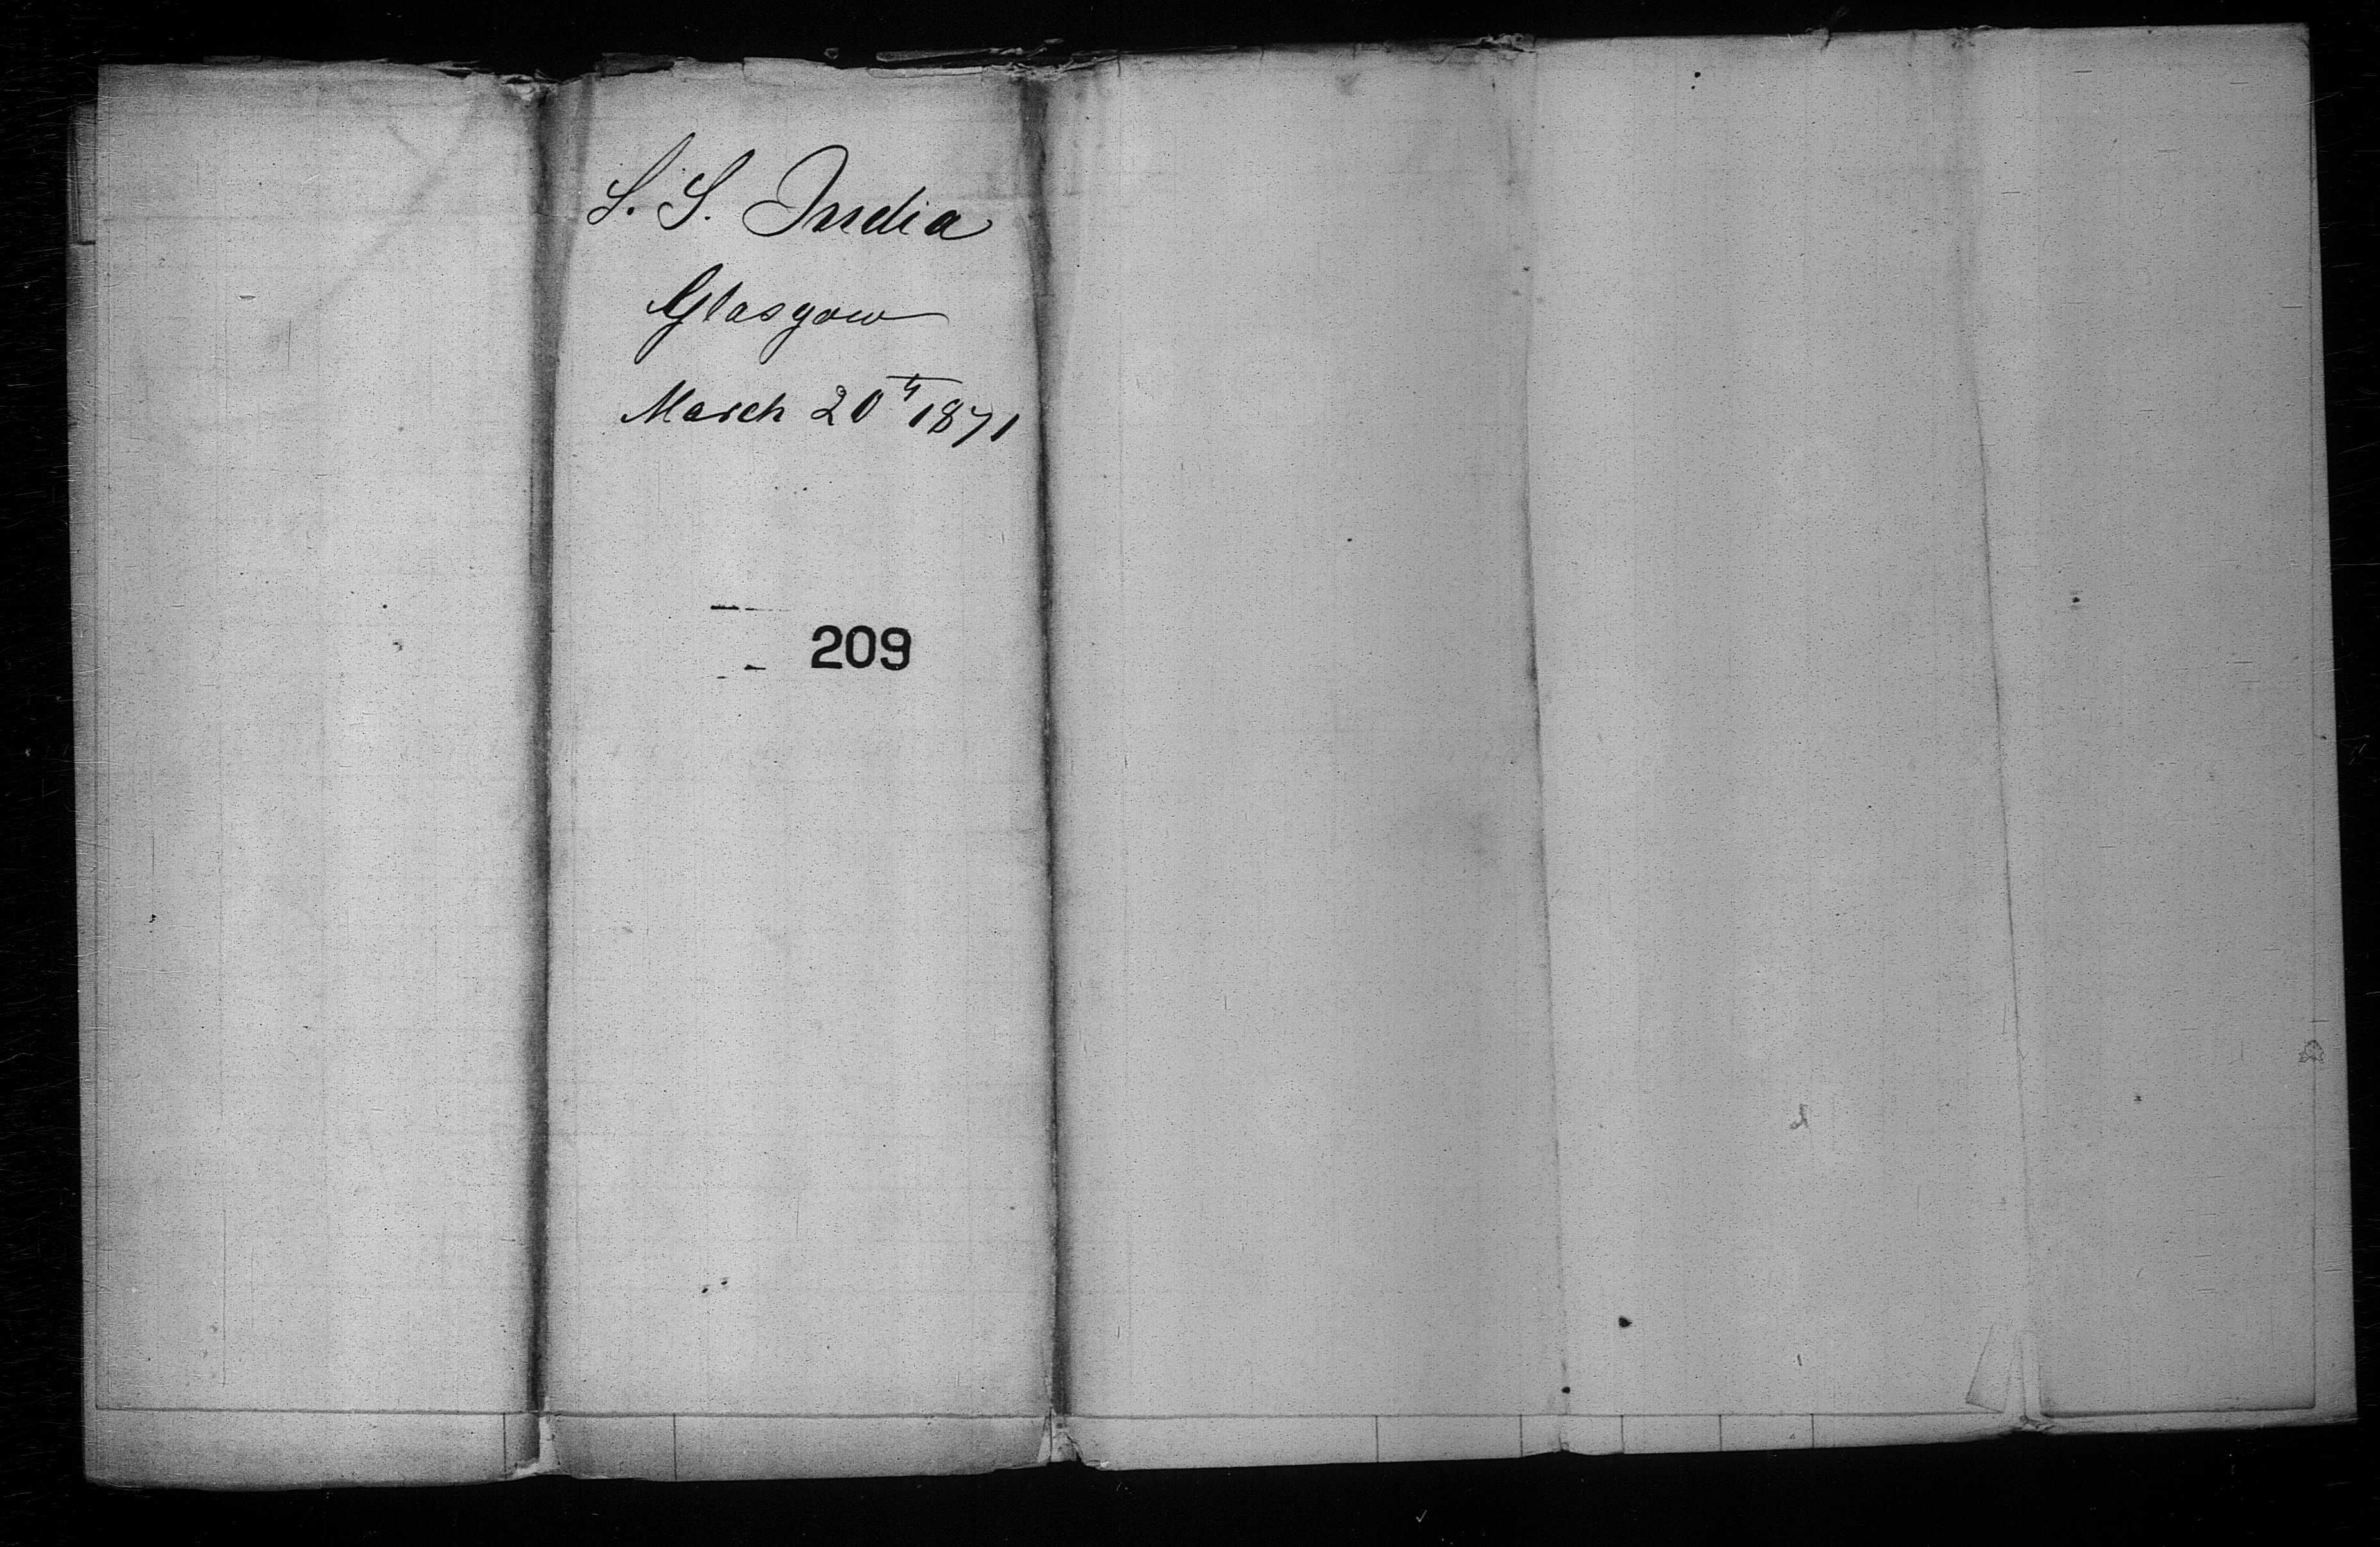 S. S. India
Glasgow
March 20th 1871
209